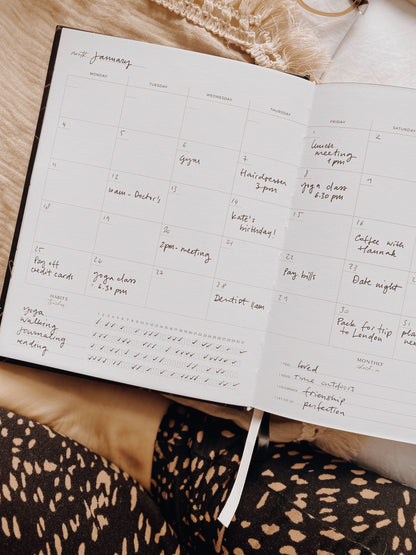 month: January
MONDAY TUESDAY WEDNESDAY THURSDAY FRIDAY SATURDAY
1 lunch
meeting
1 pm
2
4
5
6
Gym
7
Hairdresser
3 pm
8
yoga class
6.30 pm
9
11
12
10am - Doctor's
13
14
Kate's
birthday!
15
16
Coffee with
Hannah
18
19
20
2pm - meeting
21
22
Pay bills
23
Date night
25
Pay off
credit cards
26
yoga class
6.30 pm
27
28
Dentist 11am
29
30
Pack for trip
to London
31
HABITS
yoga
walking
journaling
reading
MONTHLY
loved
time outdoors
friendship
perfection